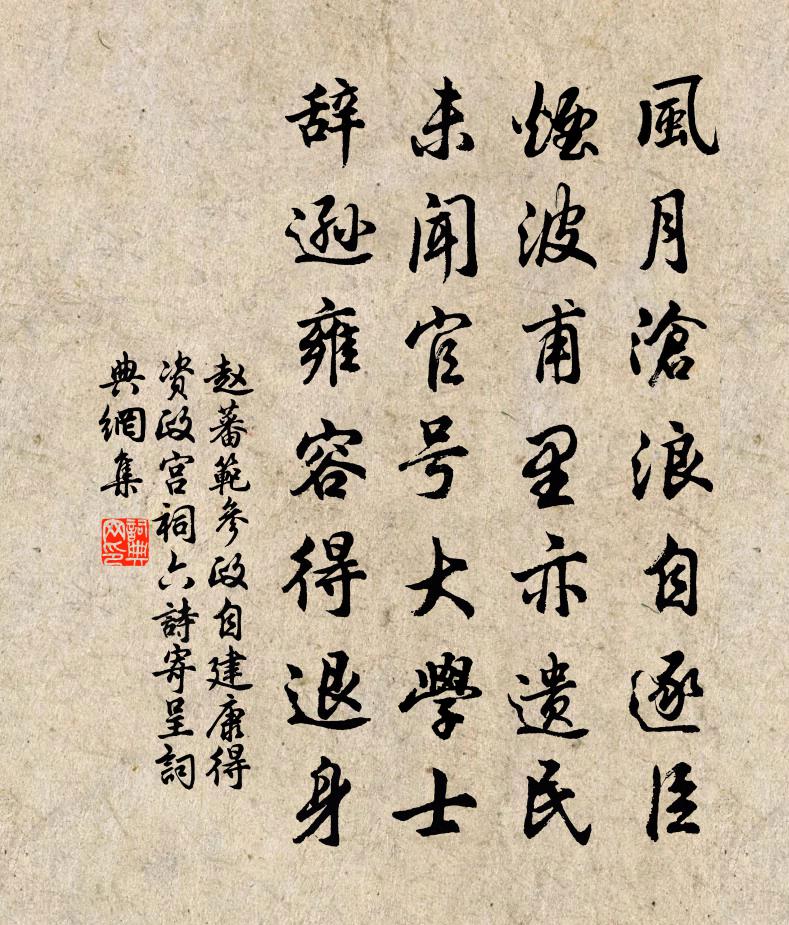 風月滄浪自逐臣
煙波甫里亦遗民
未聞官号大學士
辞遜雍容得退身
赵蕃範參政自建康得
资政宫祠六詩寄呈詞
典網集
詞典
网印